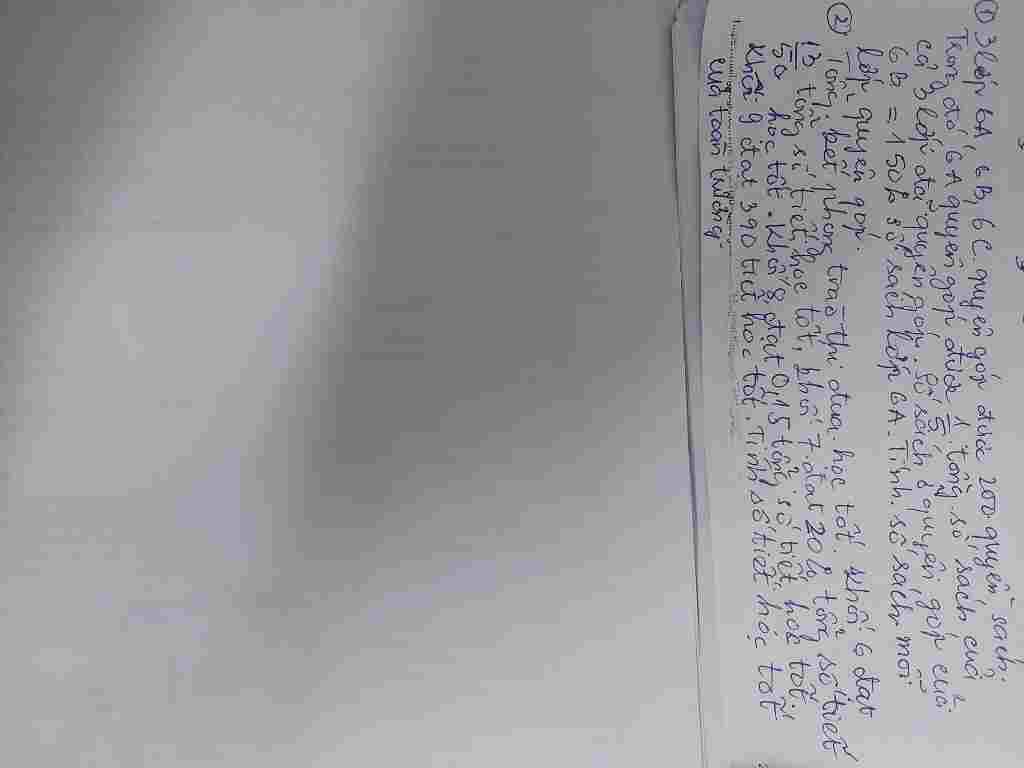 ① 3 lớp 6A, 6B, 6C quyên góp được 200 quyển sách.
Trong đó 6A quyên góp được 1/5 tổng số sách của
cả 3 lớp đã quyên góp. Số sách quyên góp của
6B = 150% số sách lớp 6A. Tính số sách mỗi
lớp quyên góp.
② Tổng kết phong trào thi đua học tốt. Khối 6 đạt
13/50 tổng số tiết học tốt, khối 7 đạt 20% tổng số tiết
học tốt. Khối 8 đạt 0,15 tổng số tiết học tốt.
Khối 9 đạt 390 tiết học tốt. Tính số tiết học tốt
của toàn trường